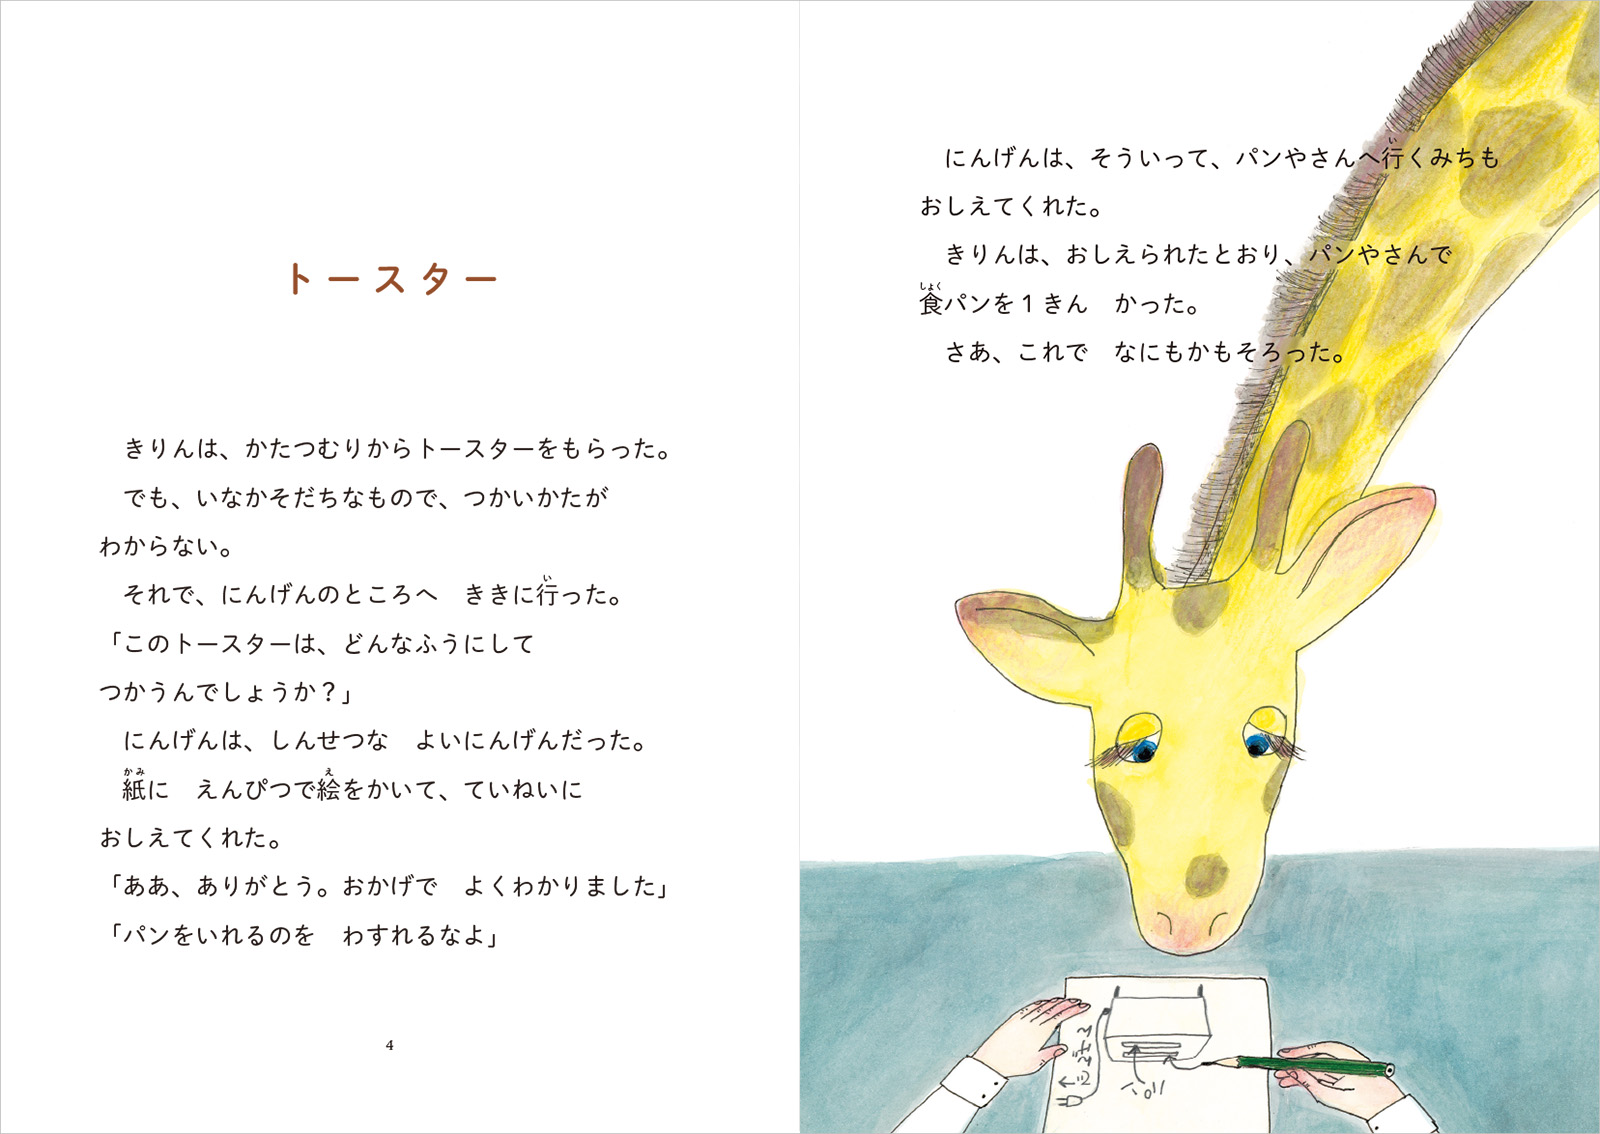 トースター
きりんは、かたつむりからトースターをもらった。
でも、いなかそだちなもので、つかいかたが
わからない。
それで、にんげんのところへ　ききに行った。
「このトースターは、どんなふうにして
つかうんでしょうか？」
にんげんは、しんせつな　よいにんげんだった。
紙に　えんぴつで絵をかいて、ていねいに
おしえてくれた。
「ああ、ありがとう。おかげで　よくわかりました」
「パンをいれるのを　わすれるなよ」
4
にんげんは、そういって、パンやさんへ行くみちも
おしえてくれた。
きりんは、おしえられたとおり、パンやさんで
食パンを１きん　かった。
さあ、これで　なにもかもそろった。
パン